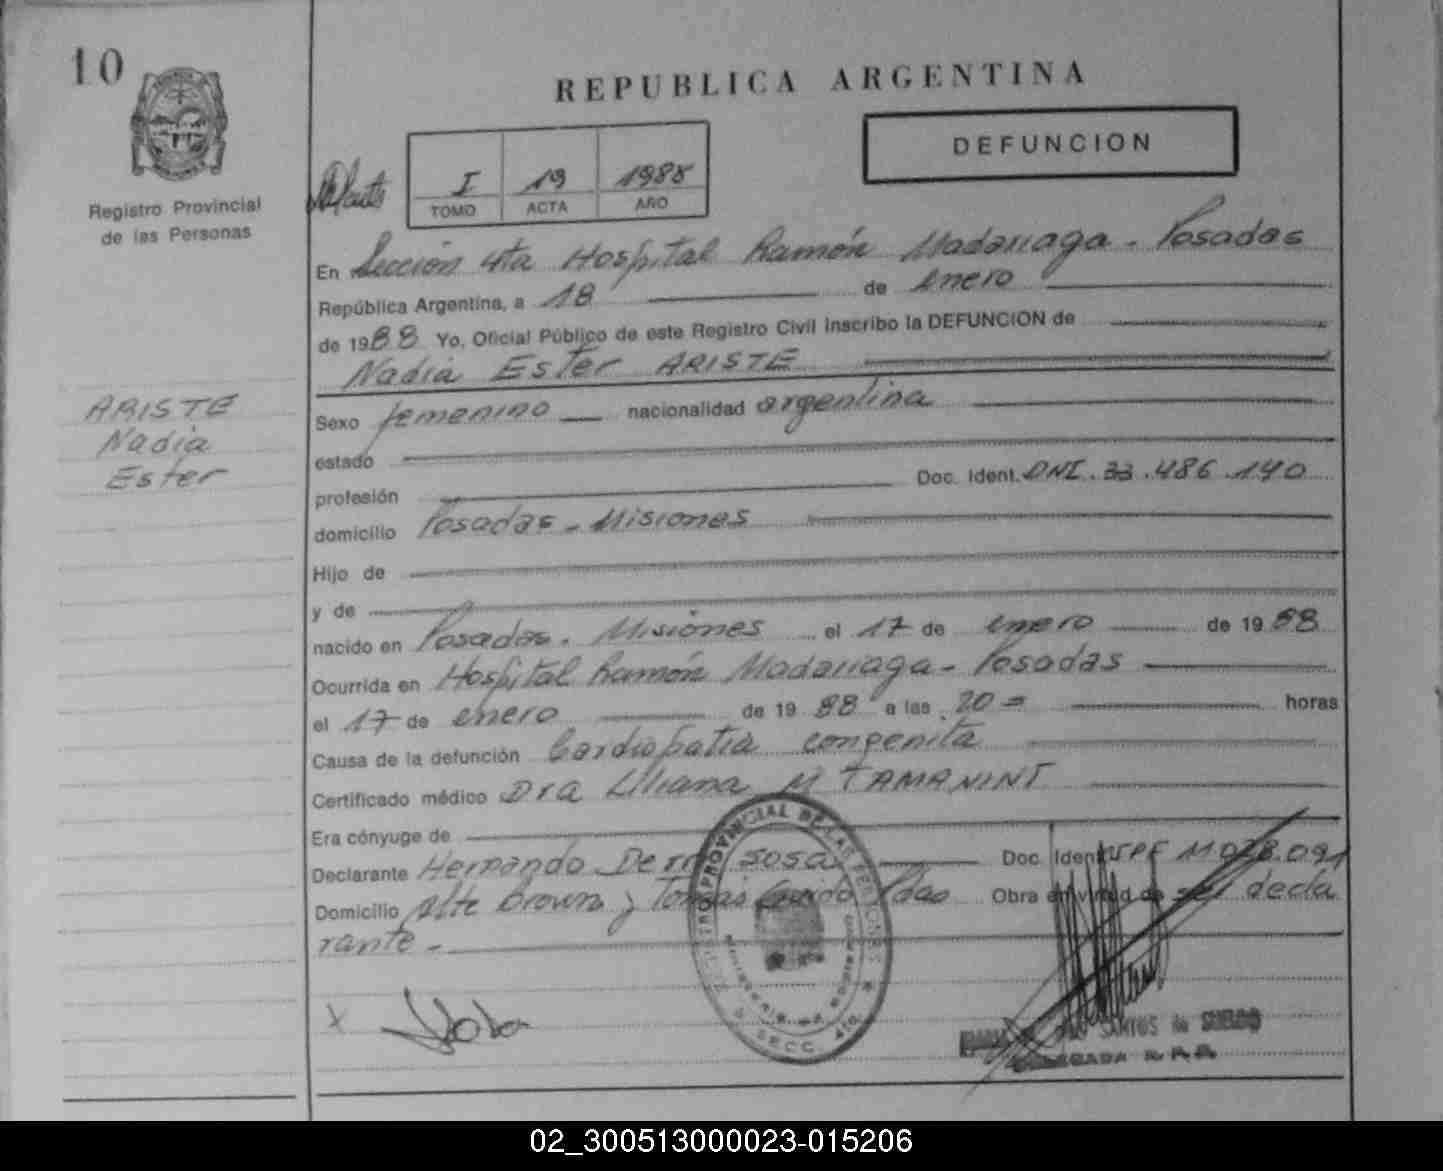 10
REPUBLICA ARGENTINA
DEFUNCION
I 19 1988
TOMO ACTA AÑO
Registro Provincial
de las Personas
En Sección 4ta Hospital Ramón Madariaga - Posadas
República Argentina, a 18 de enero
de 1988 Yo, Oficial Público de este Registro Civil Inscribo la DEFUNCION de
Nadia Ester ARISTE
ARISTE
Nadia
Ester
Sexo femenino nacionalidad argentina
estado
profesión Doc. Ident. DNI. 33.486.140
domicilio Posadas - Misiones
Hijo de
y de
nacido en Posadas - Misiones el 17 de enero de 1988
Ocurrida en Hospital Ramón Madariaga - Posadas
el 17 de enero de 1988 a las 20 = horas
Causa de la defunción Cardiopatia congenita
Certificado médico Dra Liliana M TAMANINI
Era cónyuge de
Declarante Hernando De Sosa Doc. Ident. 11.028.091
Domicilio Alte Brown y Tomas Guido Pdas Obra en virtud de ser decla
rante -
REGISTRO PROVINCIAL DE LAS PERSONAS
SECC. 4ta.
X Sosa
SANTOS de SUELDO
DELEGADA R.P.P.
02_300513000023-015206